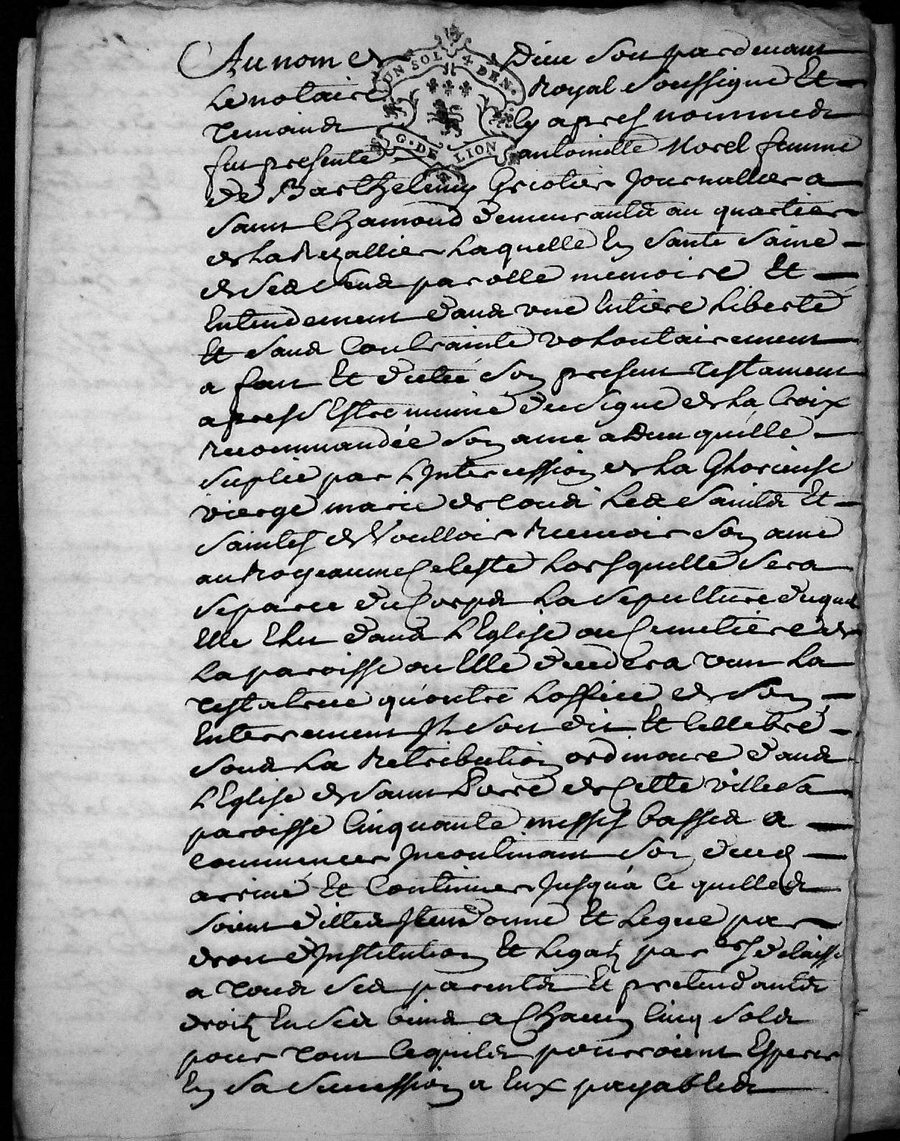 Au nom de Dieu soit pardevant
UN SOL 4 DEN.
G. DE LION
Le notaire Royal soussigné Et
temoins cy apres nommes
fut presente antoinette Morel femme
de Barthelemy Griotier Journallier a
Saint Chamond demeurante au quartier
de la Rezallier Laquelle En santé saine
de ses sens parolle memoire Et
Entendement dans une Entiere Liberté
Et sans Contrainte volontairement
a fait Et dicté son present testament
apres s'Estre munie du signe de La Croix
Recommandée son ame a Dieu quelle
suplie par L'Intercession de La Glorieuse
vierge marie de tous Les saints Et
saintes de Voulloir Recevoir son ame
au Royeaume Celeste Lorsquelle sera
separee du Corps La sepulture duquel
Elle Elit dans L'Eglise ou Cemetiere de
La paroisse ou Elle decedera veut La
testatrice qu'outre Loffice de son
Enterrement Il soit dit Et Cellebré
sous La Retribution ordinaire dans
L'Eglise de saint Pierre de Cette ville sa
paroisse Cinquante messes basses a
Commencer Incontinant son deces
arrivé Et Continuer Jusqu'a Ce quelles
soient dittes Item donne Et Legue par
droit d'Institution Et Legat par Elle delaissé
a tous ses parents Et pretendants
droit En ses biens a Chacun Cinq sols
pour tout Cequils pourroient Esperer
En sa succession a Eux payables